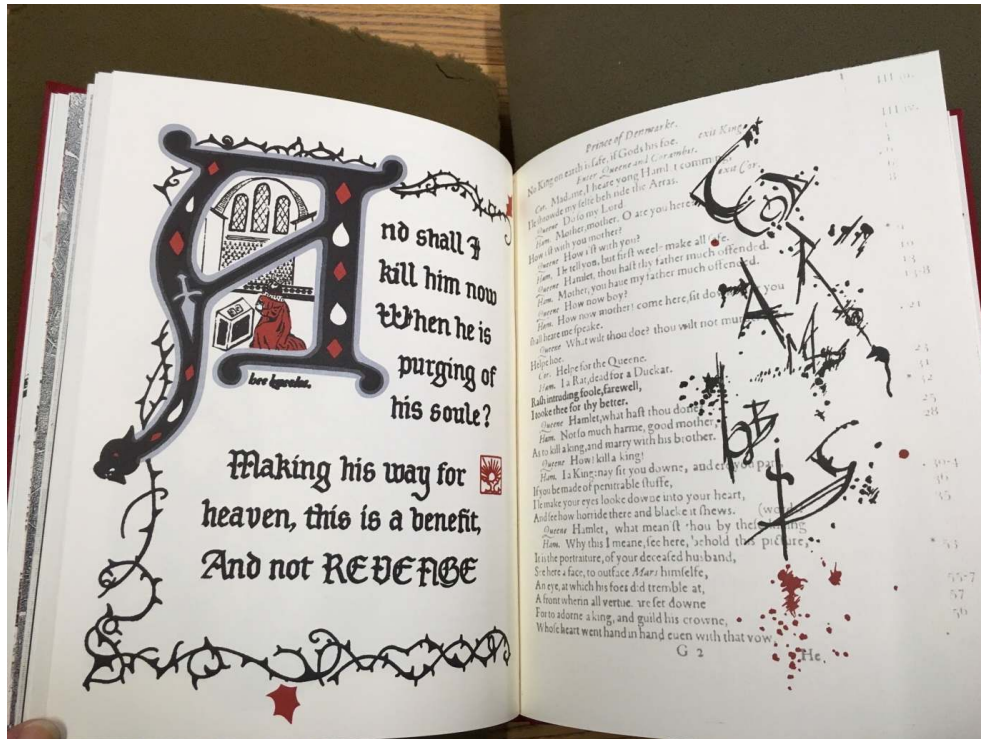 And shall I
kill him now
When he is
purging of
his soule?
hee kneeles.
Making his way for
heaven, this is a benefit,
And not REVENGE
Prince of Denmarke.
No King on earth is ſafe, if Gods his foe. exit King.
Enter Queene and Corambis.
Cor. Madame, I heare yong Hamlet comming,
I'le ſhrowde my ſelfe behinde the Arras. exit Cor.
Queene Do ſo my Lord.
Ham. Mother, mother, O are you here?
How i'ſt with you mother?
Queene How i'ſt with you?
Ham. I'le tell you, but firſt weele make all ſafe.
Queene Hamlet, thou haſt thy father much offended.
Ham. Mother, you haue my father much offended.
Queene How now boy?
Ham. How now mother! come here, ſit downe, for you
ſhall heare me ſpeake.
Queene What wilt thou doe? thou wilt not murder
Helpe hoe.
Cor. Helpe for the Queene.
Ham. I a Rat, dead for a Duckat.
Raſh intruding foole, farewell,
I tooke thee for thy better.
Queene Hamlet, what haſt thou done?
Ham. Not ſo much harme, good mother,
As to kill a king, and marry with his brother.
Queene How! kill a king!
Ham. I a King: nay ſit you downe, and ere you part,
If you be made of penitrable ſtuffe,
I'le make your eyes looke downe into your heart,
And ſee how horride there and blacke it ſhews. (words
Queene Hamlet, what mean'ſt thou by theſe killing
Ham. Why this I meane, ſee here, behold this picture,
It is the portraiture, of your deceaſed husband,
See here a face, to outface Mars himſelfe,
An eye, at which his foes did tremble at,
A front wherin all vertues are ſet downe
For to adorne a king, and guild his crowne,
Whoſe heart went hand in hand euen with that vow,
G 2 He,
CoRAMBIS